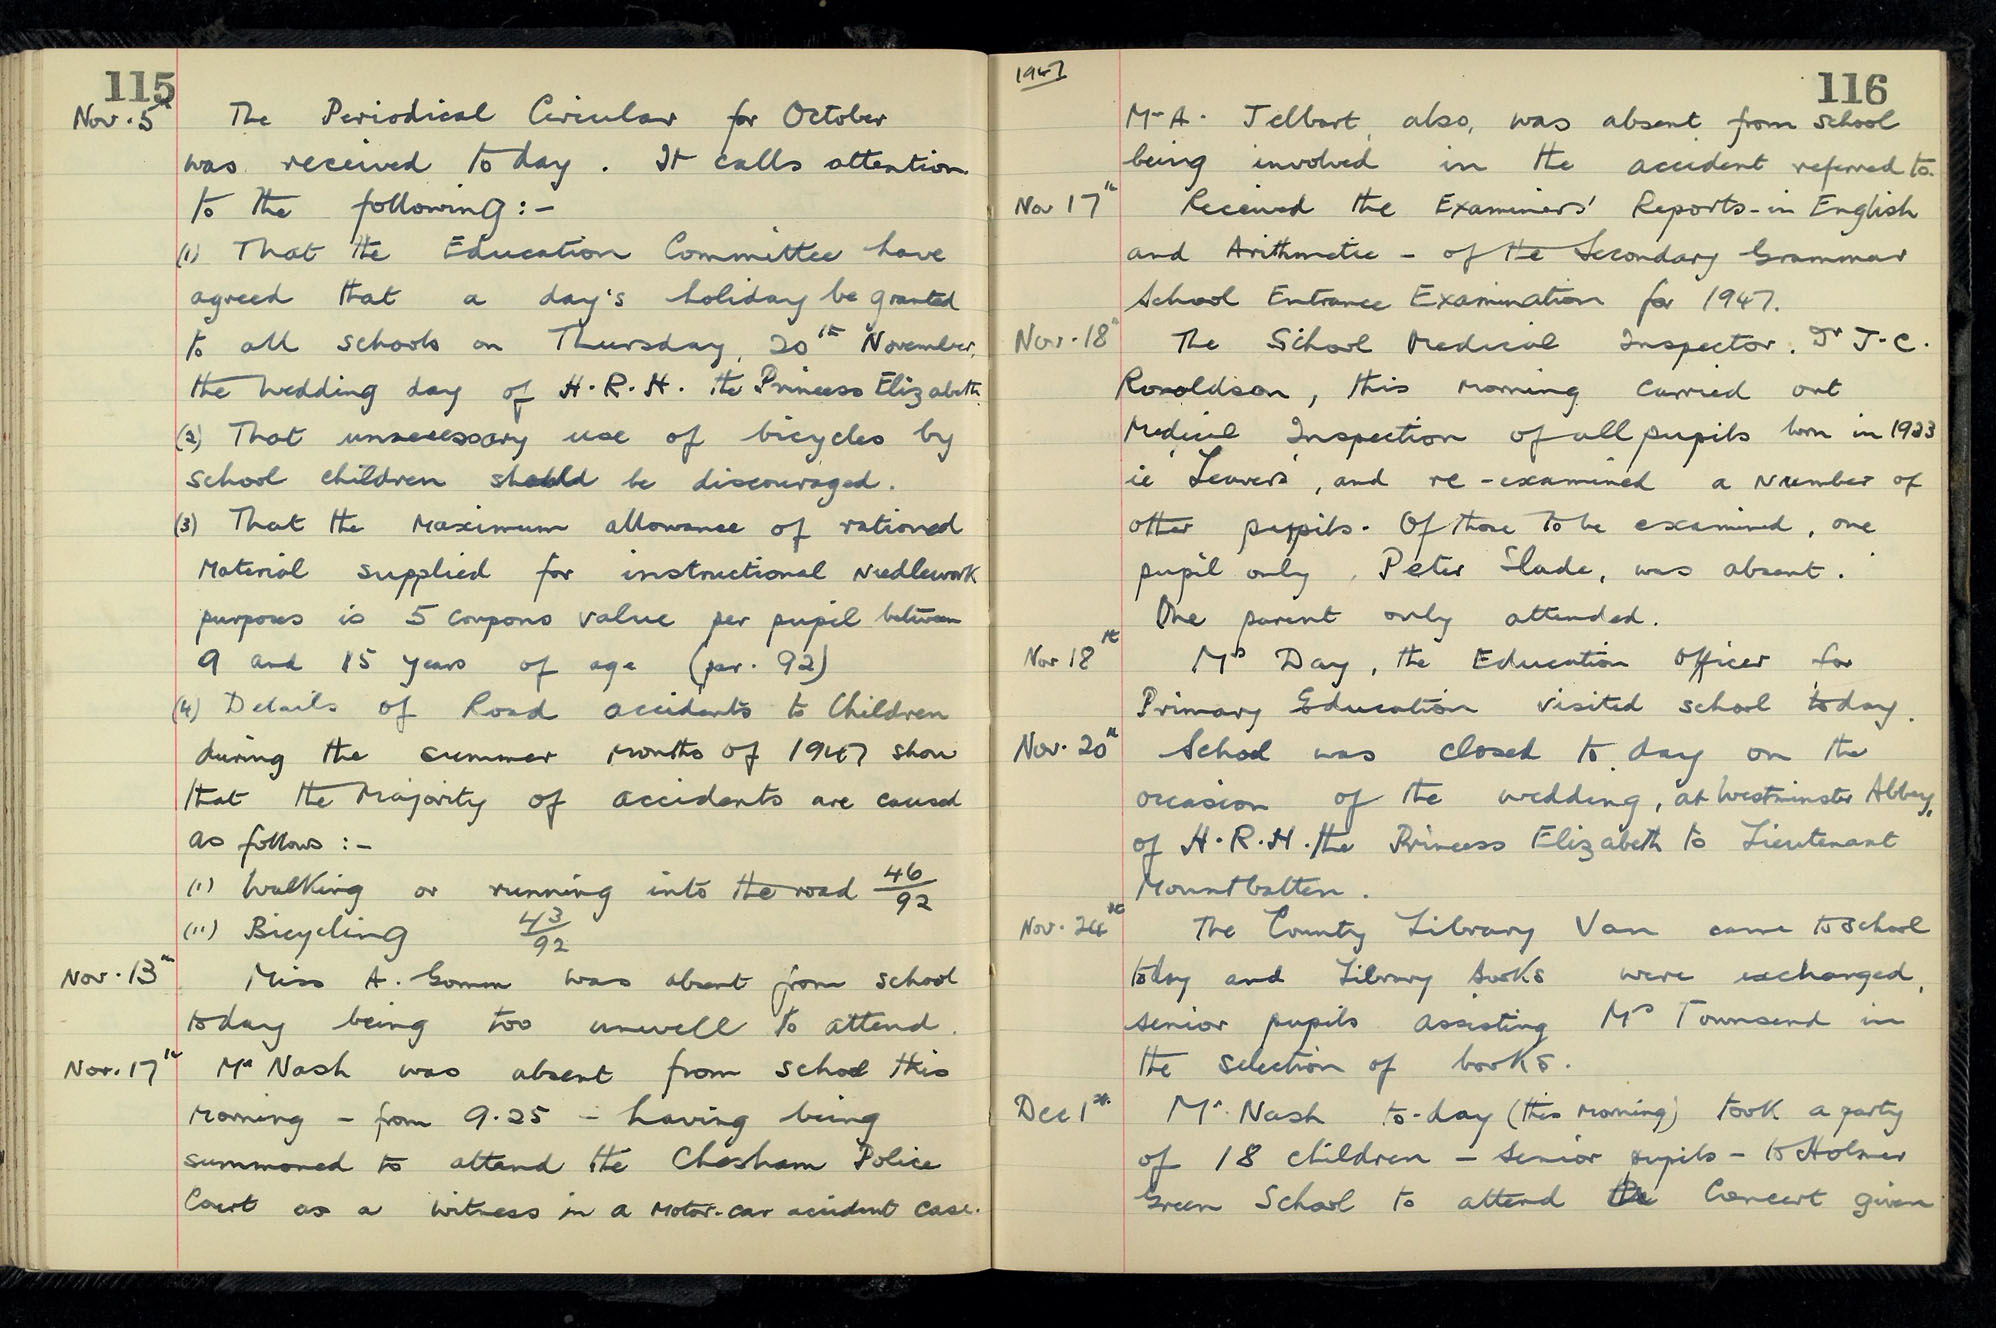 115
Nov. 5th The Periodical Circular for October
was received to day. It calls attention
to the following:-
(1) That the Education Committee have
agreed that a day's holiday be granted
to all schools on Thursday, 20th November,
the wedding day of H.R.H. the Princess Elizabeth
(2) That unnecessary use of bicycles by
school children should be discouraged.
(3) That the Maximum allowance of rationed
Material supplied for instructional Needlework
purposes is 5 coupons value per pupil between
9 and 15 years of age (par. 92)
(4) Details of Road accidents to Children
during the summer Months of 1947 show
that the Majority of accidents are caused
as follows:-
(i) Walking or running into the road 46/92
(ii) Bicycling 43/92
Nov. 13th Miss A. Gomm was absent from school
today being too unwell to attend.
Nov. 17th Mr Nash was absent from school this
Morning - from 9.25 - having being
summoned to attend the Chesham Police
Court as a witness in a Motor-car accident case.
1947
116
Mr A. Telbart, also, was absent from school
being involved in the accident referred to.
Nov 17th Received the Examiners' Reports - in English
and Arithmetic - of the Secondary Grammar
School Entrance Examination for 1947.
Nov. 18th The School Medical Inspector, Dr J.C.
Ronaldson, this morning carried out
Medical Inspection of all pupils born in 1933
ie 'Leavers', and re-examined a Number of
other pupils. Of those to be examined, one
pupil only, Peter Slade, was absent.
One parent only attended.
Nov 18th Mrs Day, the Education Officer for
Primary Education visited school today.
Nov. 20th School was closed to day on the
occasion of the wedding, at Westminster Abbey,
of H.R.H. the Princess Elizabeth to Lieutenant
Mountbatten.
Nov. 24th The County Library Van came to school
today and Library books were exchanged,
senior pupils assisting Mrs Townsend in
the selection of books.
Dec 1st Mr. Nash to-day (this morning) took a party
of 18 children - senior pupils - to Holmer
Green School to attend the Concert given